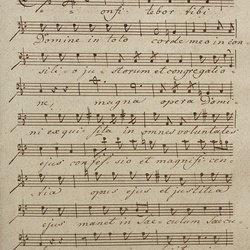 Confi tebor tibi
Domine in toto corde meo in con
silio justorum et congregatio
ne, magna opera Domi
ni exquisita in omnes voluntates
ejus confessio et magnificen
tia opus ejus et justitia
ejus manet in saeculum saecu